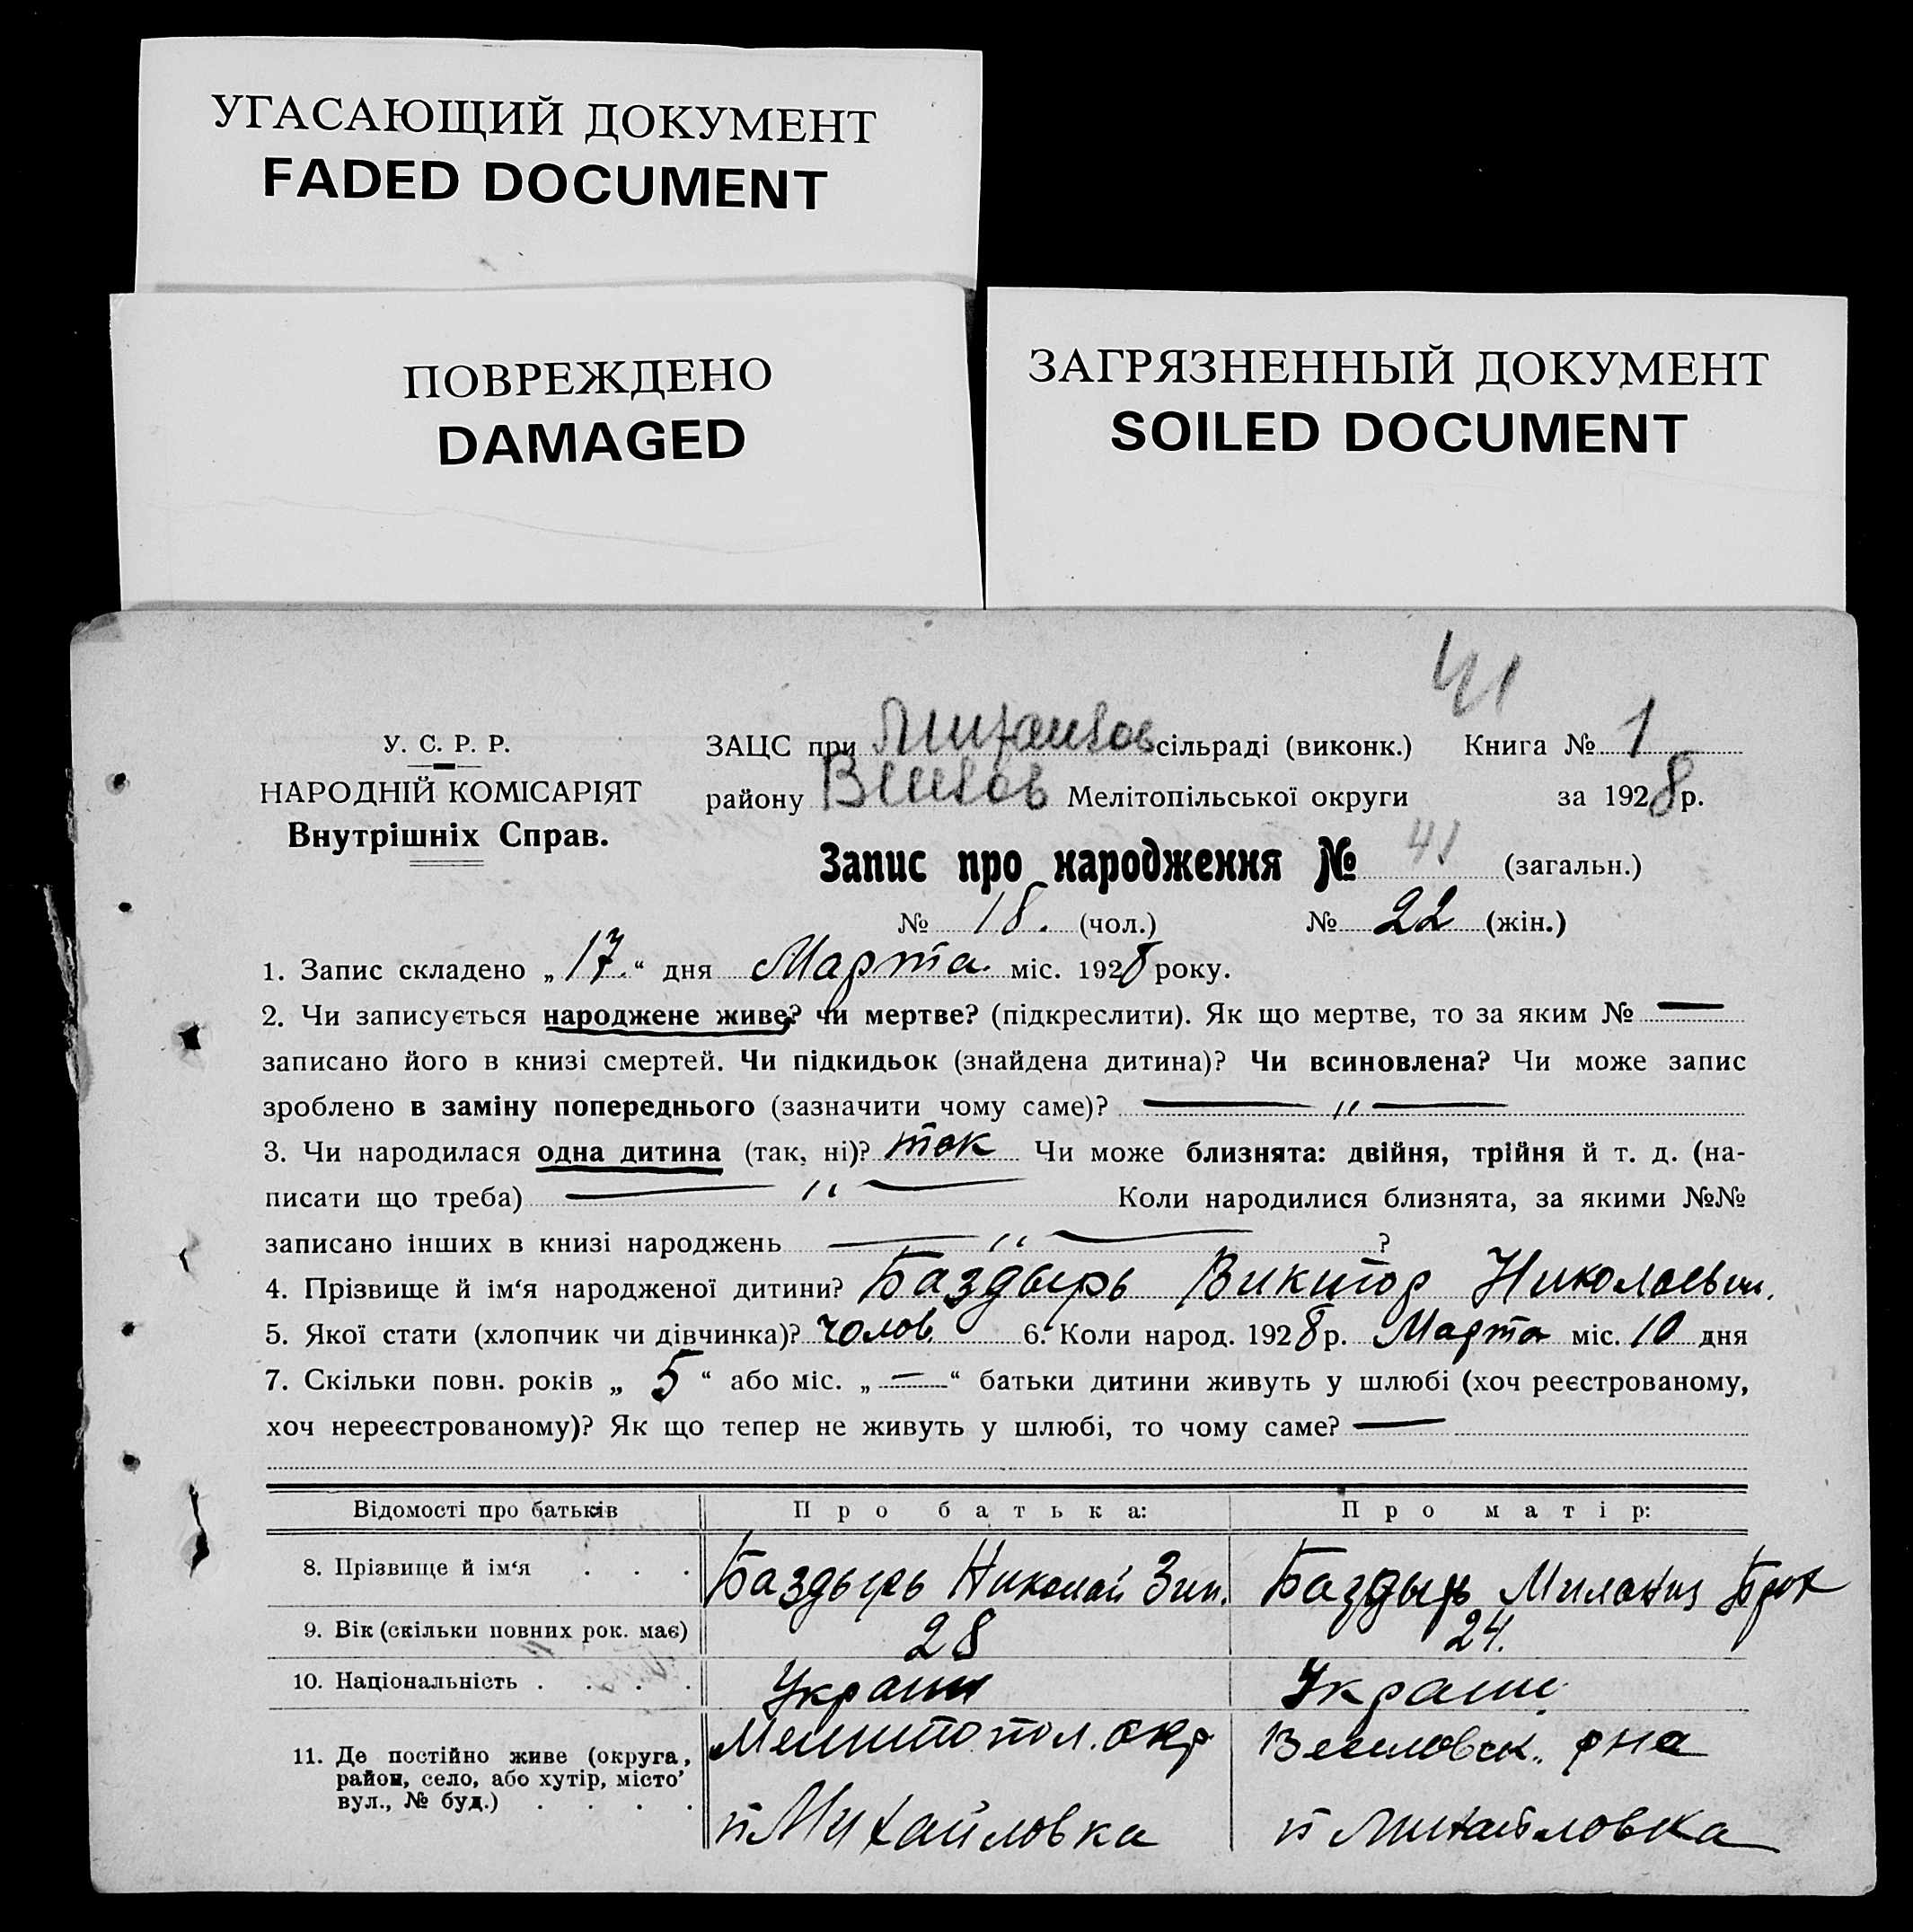 УГАСАЮЩИЙ ДОКУМЕНТ
FADED DOCUMENT
ПОВРЕЖДЕНО
DAMAGED
ЗАГРЯЗНЕННЫЙ ДОКУМЕНТ
SOILED DOCUMENT
41
У. С. Р. Р.
НАРОДНІЙ КОМІСАРІЯТ
Внутрішніх Справ.
ЗАЦС при Михайлов сільраді (виконк.) Книга № 1
району Весело в Мелітопільської округи за 1928 р.
Запис про народження № 41 (загальн.)
№ 18. (чол.) № 22 (жін.)
1. Запис складено „17.“ дня Марта. міс. 1928 року.
2. Чи записується народжене живе? чи мертве? (підкреслити). Як що мертве, то за яким № —
записано його в книзі смертей. Чи підкидьок (знайдена дитина)? Чи всиновлена? Чи може запис
зроблено в заміну попереднього (зазначити чому саме)? — „ —
3. Чи народилася одна дитина (так, ні)? так Чи може близнята: двійня, трійня й т. д. (на-
писати що треба) — „ — Коли народилися близнята, за якими №№
записано інших в книзі народжень — „ — ?
4. Прізвище й ім‘я народженої дитини? Баздырь Виктор Николаевич.
5. Якої стати (хлопчик чи дівчинка)? чолов 6. Коли народ. 1928 р. Марта міс. 10 дня
7. Скільки повн. років „ 5 “ або міс. „ — “ батьки дитини живуть у шлюбі (хоч реєстрованому,
хоч нереєстрованому)? Як що тепер не живуть у шлюбі, то чому саме? —
Відомості про батьків Про батька: Про матір:
8. Прізвище й ім‘я . . . Баздырь Николай Зин. Баздырь Милания
9. Вік (скільки повних рок. має) 28 24.
10. Національність . . . . Украин Украин
11. Де постійно живе (округа, район, село, або хутір, місто, вул., № буд.) . . . . Мелитопол. окр Веселовск. рна
п Михайловка п Михайловка